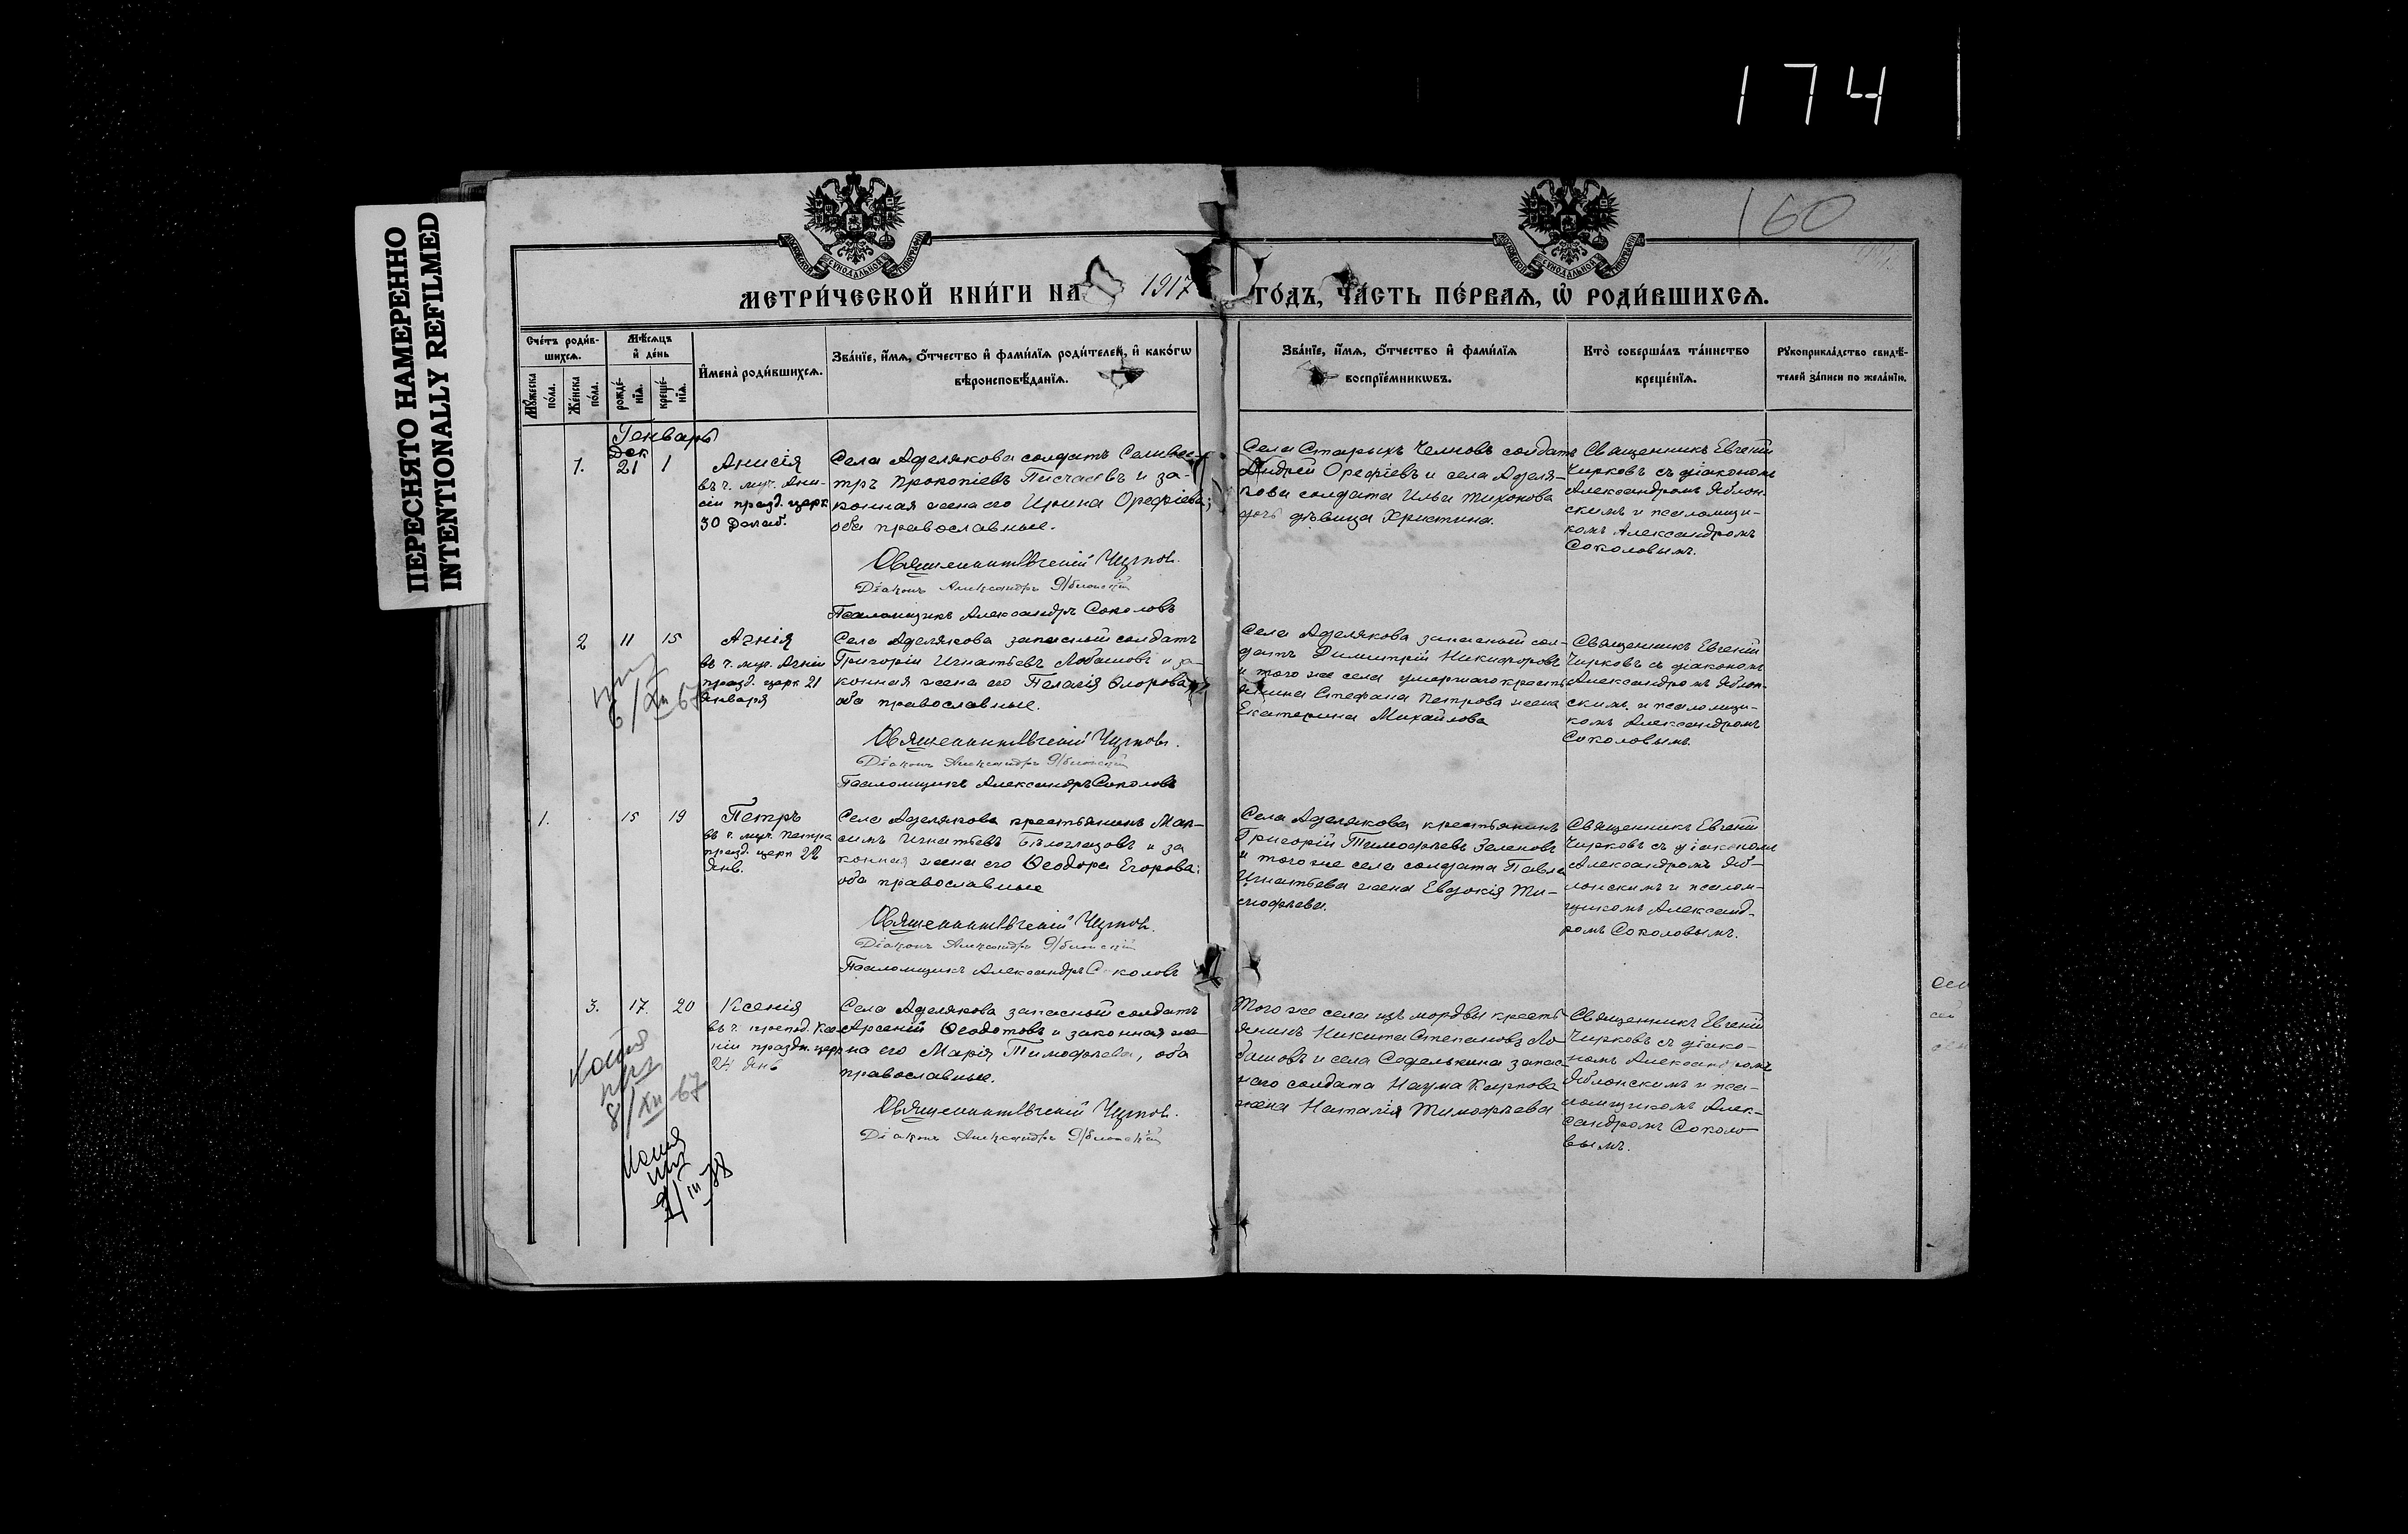 174
ПЕРЕСНЯТО НАМЕРЕННО
INTENTIONALLY REFILMED
160
МОСКОВСКОЙ СѴНОДАЛЬНОЙ ТИПОГРАФІИ
МОСКОВСКОЙ СѴНОДАЛЬНОЙ ТИПОГРАФІИ
МЕТРИ́ЧЕСКОЙ КНИ́ГИ НА 1917 ГО́ДЪ, ЧА́СТЬ ПЕ́РВАѦ, Ѡ҆ РОДИ́ВШИХСѦ.
Сче́тъ роди́в-
шихсѧ.
Мꙋ́жеска
по́ла.
Же́нска
по́ла.
Мѣ́сѧцъ
и҆ де́нь
рожде́-
нїѧ.
креще́-
нїѧ.
И҆мена̀ роди́вшихсѧ.
Зва́нїе, и҆́мѧ, ѻ҆́тчество и҆ фами́лїѧ роди́телей, и҆ како́гѡ
вѣроисповѣ́данїѧ.
Зва́нїе, и҆́мѧ, ѻ҆́тчество и҆ фами́лїѧ
воспрїе́мникѡвъ.
Кто̀ соверша́лъ та́инство
креще́нїѧ.
Рꙋкоприкла́дство свидѣ́-
телей за́писи по жела́нїю.
Генварь
Дек
1. 21 1
Анисія
въ ч. муч. Ани-
сіи празд. церк
30 Декаб.
Села Аделякова солдатъ Селивес-
тръ Прокопіевъ Писчасовъ и за-
конная жена его Ирина Орефіева;
оба православные.
Священникъ Евгеній Чирковъ.
Діаконъ Александръ Яблонскій
Псаломщикъ Александръ Соколовъ
Села Старыхъ Челновъ солдатъ
Андрей Орефіевъ и села Аделя-
кова солдата Ильи Тихонова
дочь дѣвица Христина.
Священникъ Евгеній
Чирковъ съ діакономъ
Александромъ Яблон-
скимъ и псаломщи-
комъ Александромъ
Соколовымъ.
2 11 15
Агнія
въ ч. муч. Агніи
празд. церк 21
Января
Села Аделякова запасный солдатъ
Григорій Игнатьевъ Лобашовъ и за-
конная жена его Пелагія Флорова
оба православные.
Священникъ Евгеній Чирковъ.
Діаконъ Александръ Яблонскій
Псаломщикъ Александръ Соколовъ
Села Аделякова запасный сол-
датъ Димитрій Никифоровъ
и того же села умершаго кресть
янина Стефана Петрова жена
Екатерина Михайлова
Священникъ Евгеній
Чирковъ съ діакономъ
Александромъ Яблон-
скимъ и псаломщи-
комъ Александромъ
Соколовымъ.
6/XII 67
1. 15 19
Петръ
въ ч. муч. Петра
празд. церк 22
Янв.
Села Аделякова крестьянинъ Мак-
симъ Игнатьевъ Бѣлоглазовъ и за
конная жена его Ѳеодора Егорова:
оба православные
Священникъ Евгеній Чирковъ.
Діаконъ Александръ Яблонскій
Псаломщикъ Александръ Соколовъ
Села Аделякова крестьянинъ
Григорій Тимофѣевъ Зеленовъ
и того же села солдата Павла
Игнатьева жена Евдокія Ти-
мофѣева.
Священникъ Евгеній
Чирковъ съ діакономъ
Александромъ Яб-
лонскимъ и псалом-
щикомъ Александ-
ромъ Соколовымъ.
3. 17. 20
Ксенія
въ ч. препод. Ксе-
ніи праздн. церк
24 Янв
Села Аделякова запасный солдатъ
Арсеній Ѳеодотовъ и законная же-
на его Марія Тимофѣева, оба
православные.
Священникъ Евгеній Чирковъ.
Діаконъ Александръ Яблонскій
Того же села изъ мордвы кресть
янинъ Никита Степановъ Ло
башовъ и села Соделькина запас-
наго солдата Наума Карпова
жена Наталія Тимофѣева
Священникъ Евгеній
Чирковъ съ діако-
номъ Александромъ
Яблонскимъ и пса-
ломщикомъ Алек-
сандромъ Соколо
вымъ.
8/XII 67